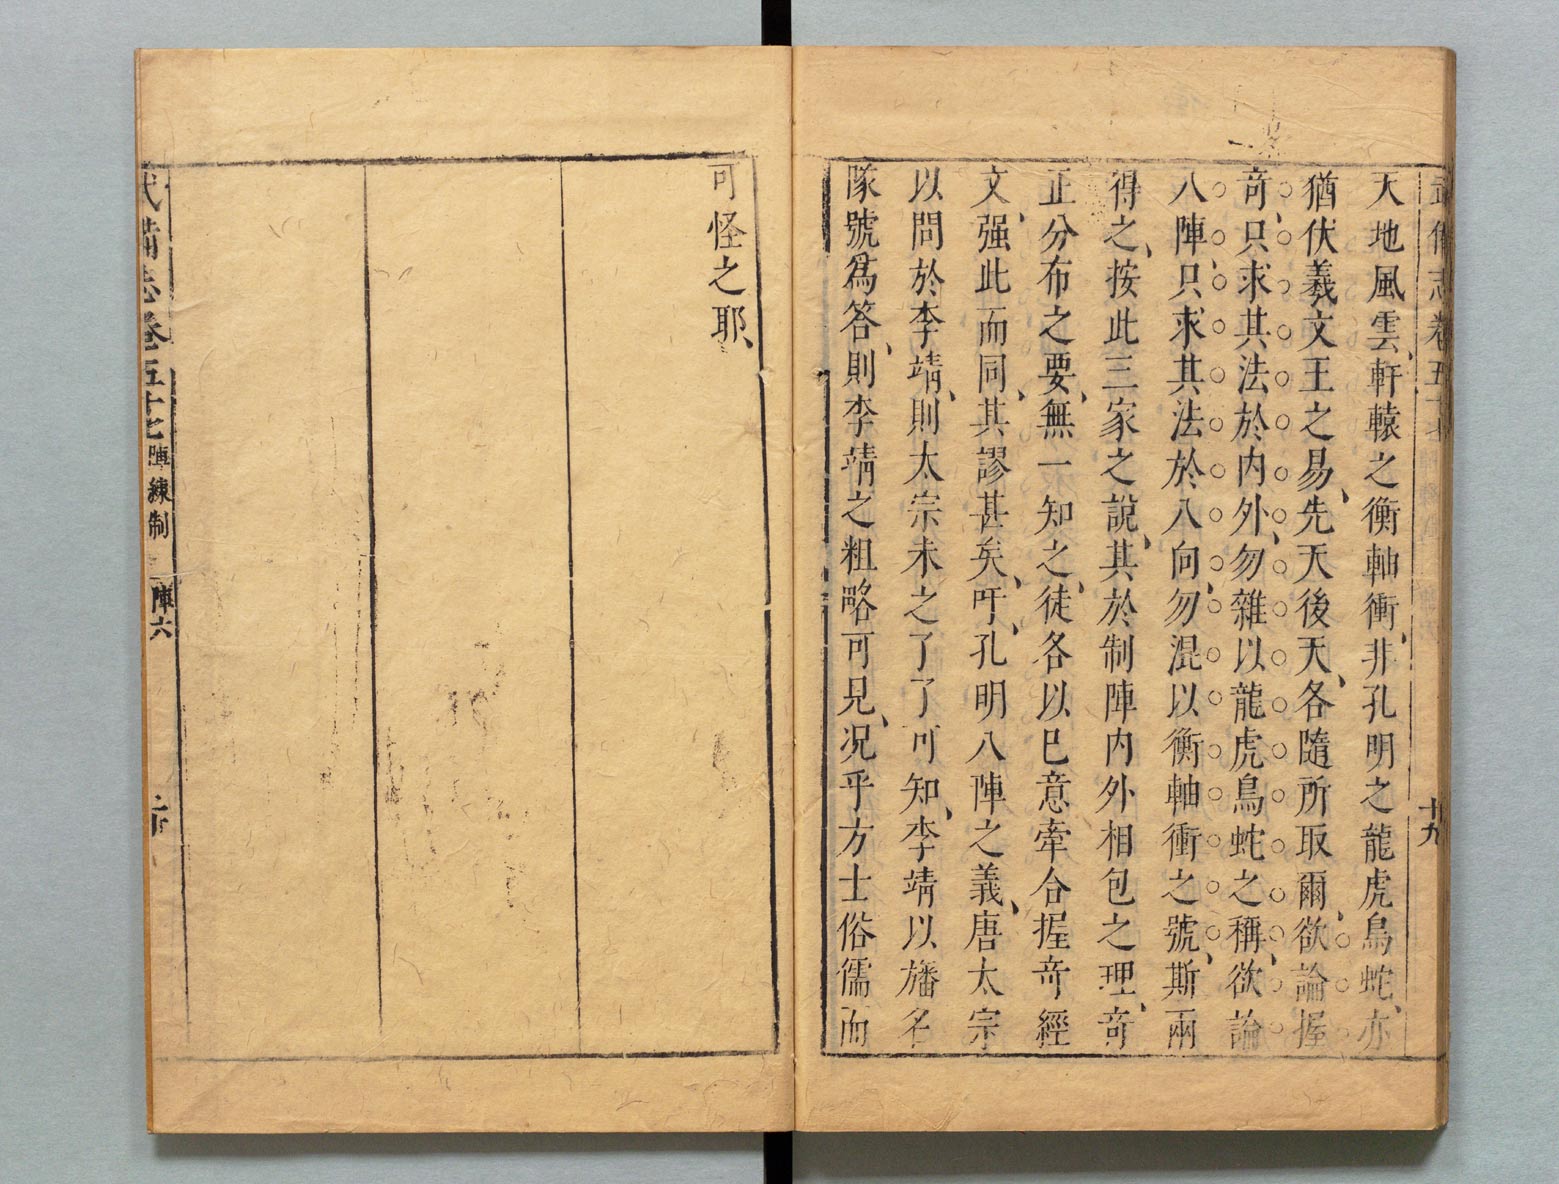 武備志卷五十七
十九
天地風雲、軒轅之衡軸衝、非孔明之龍虎鳥蛇、亦
猶伏羲文王之易、先天後天、各隨所取爾、欲論握
奇、只求其法於内外、勿雜以龍虎鳥蛇之稱、欲論
八陣、只求其法於八向、勿混以衡軸衝之號、斯兩
得之、按此三家之說、其於制陣内外相包之理、奇
正分布之要、無一知之、徒各以巳意牽合握奇經
文、强此而同、其謬甚矣、吁、孔明八陣之義、唐太宗
以問於李靖、則太宗未之了了可知、李靖以旛名
隊號爲答、則李靖之粗略可見、况乎方士俗儒而
可怪之耶、
武備志卷五十七 陣練制 陣六
二十